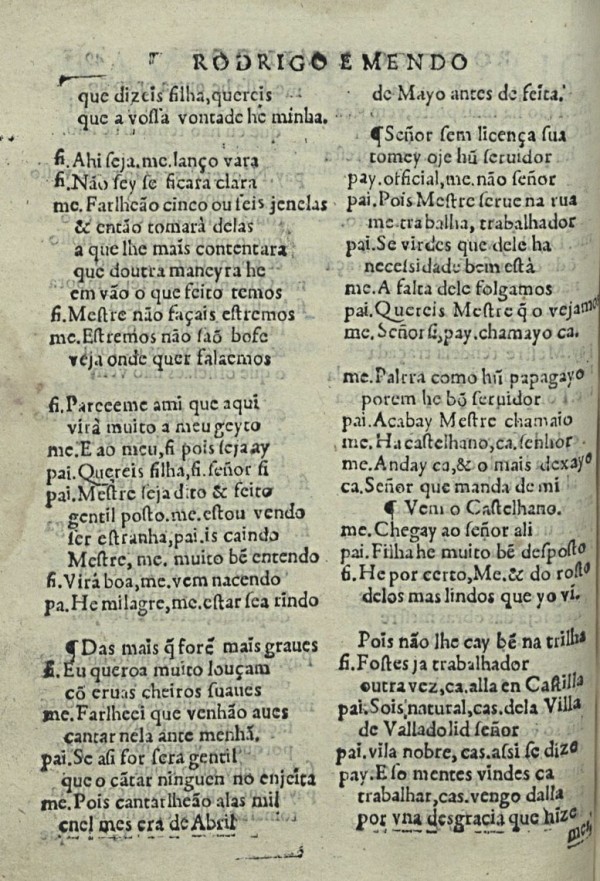 RODRIGO E MENDO
que dizeis filha, quereis
que a vossa vontade he minha.
fi. Ahi seja. me. lanço vara
fi. Não sey se ficara clara
me. Farlheão cinco ou seis jenelas
& então tomarà delas
a que lhe mais contentara
que doutra maneyra he
em vão o que feito temos
fi. Mestre não façais estremos
me. Estremos não saõ bofe
veja onde quer falaemos
fi. Pareceme ami que aqui
virà muito a meu geyto
me. E ao meu, fi pois seja ay
pai. Quereis filha, fi. señor si
pai. Mestre seja dito & feito
gentil posto. me. estou vendo
ser estranha, pai. is caindo
Mestre, me. muito bẽ entendo
fi. Virà boa, me. vem nacendo
pa. He milagre, me. estar sea rindo
¶ Das mais q̃ forẽ mais graues
fi. Eu queroa muito louçam
cõ eruas cheiros suaues
me. Farlheei que venhão aues
cantar nela ante menhã.
pai. Se asi for serà gentil
que o cãtar ninguen no enjeita
me. Pois cantarlheão alas mil
enel mes era de Abril
de Mayo antes de feita.
¶ Señor sem licença sua
tomey oje hũ seruidor
pay. official, me. não señor
pai. Pois Mestre serue na rua
me. trabalha, trabalhador
pai. Se virdes que dele ha
necessidade bem està
me. A falta dele folgamos
pai. Quereis Mestre q̃ o vejamos
me. Señor si, pay. chamayo ca.
me. Palrra como hũ papagayo
porem he bõ seruidor
pai. Acabay Mestre chamaio
me. Ha castelhano, ca. senhor
me. Anday ca, & o mais dexayo
ca. Señor que manda de mi
¶ Vem o Castelhano.
me. Chegay ao señor ali
pai. Filha he muito bẽ desposto
fi. He por certo, Me. & do rosto
delos mas lindos que yo vi.
Pois não lhe cay bẽ na trilha
fi. Fostes ja trabalhador
outra vez, ca. alla en Castilla
pai. Sois natural, cas. dela Villa
de Valladolid señor
pai. vila nobre, cas. assi se dize
pay. E so mentes vindes ca
trabalhar, cas. vengo dalla
por vna desgracia que hize